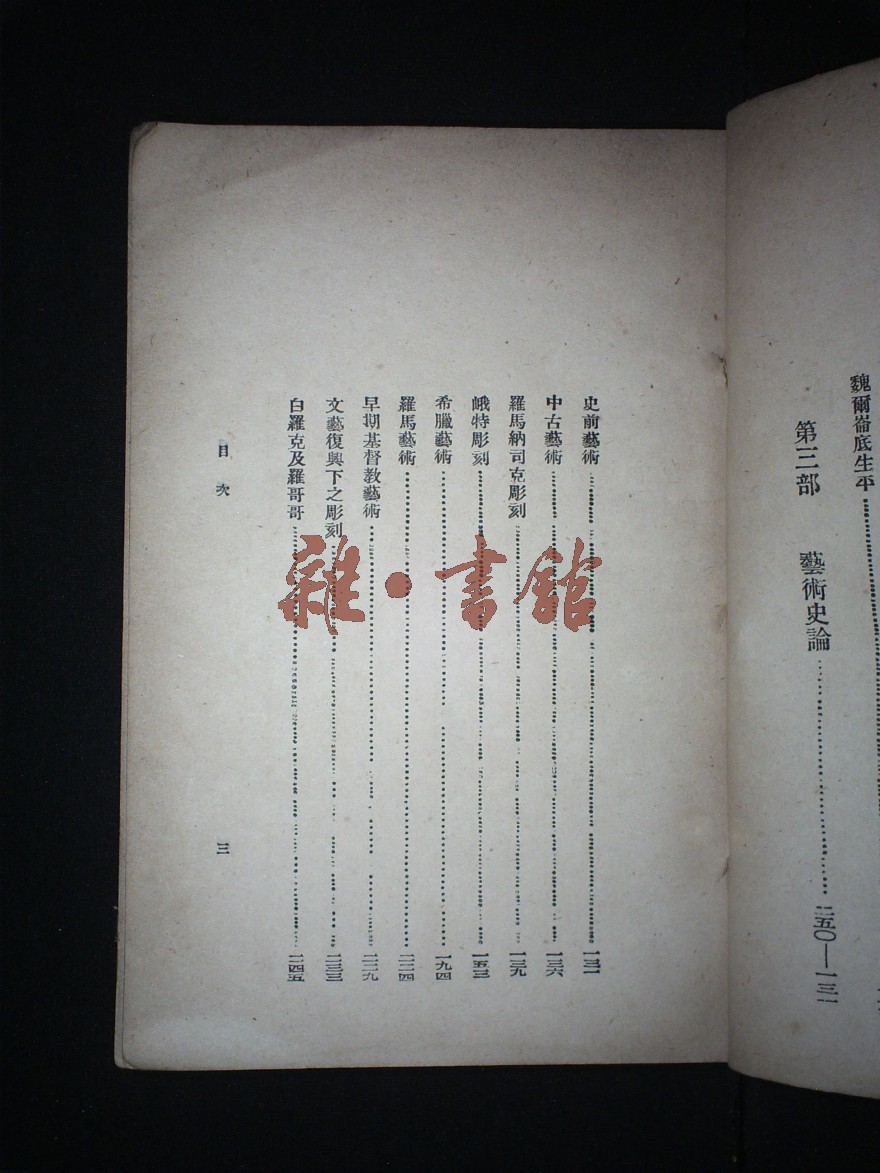 魏爾崙底生平
第三部 藝術史論 二五〇—一三一
史前藝術 一三一
中古藝術 一三六
羅馬納司克彫刻 一三九
峨特彫刻 一五三
希臘藝術 一九四
羅馬藝術 二二四
早期基督教藝術 二二九
文藝復興下之彫刻 二三三
白羅克及羅哥哥 二四五
目次
三
雜·書館